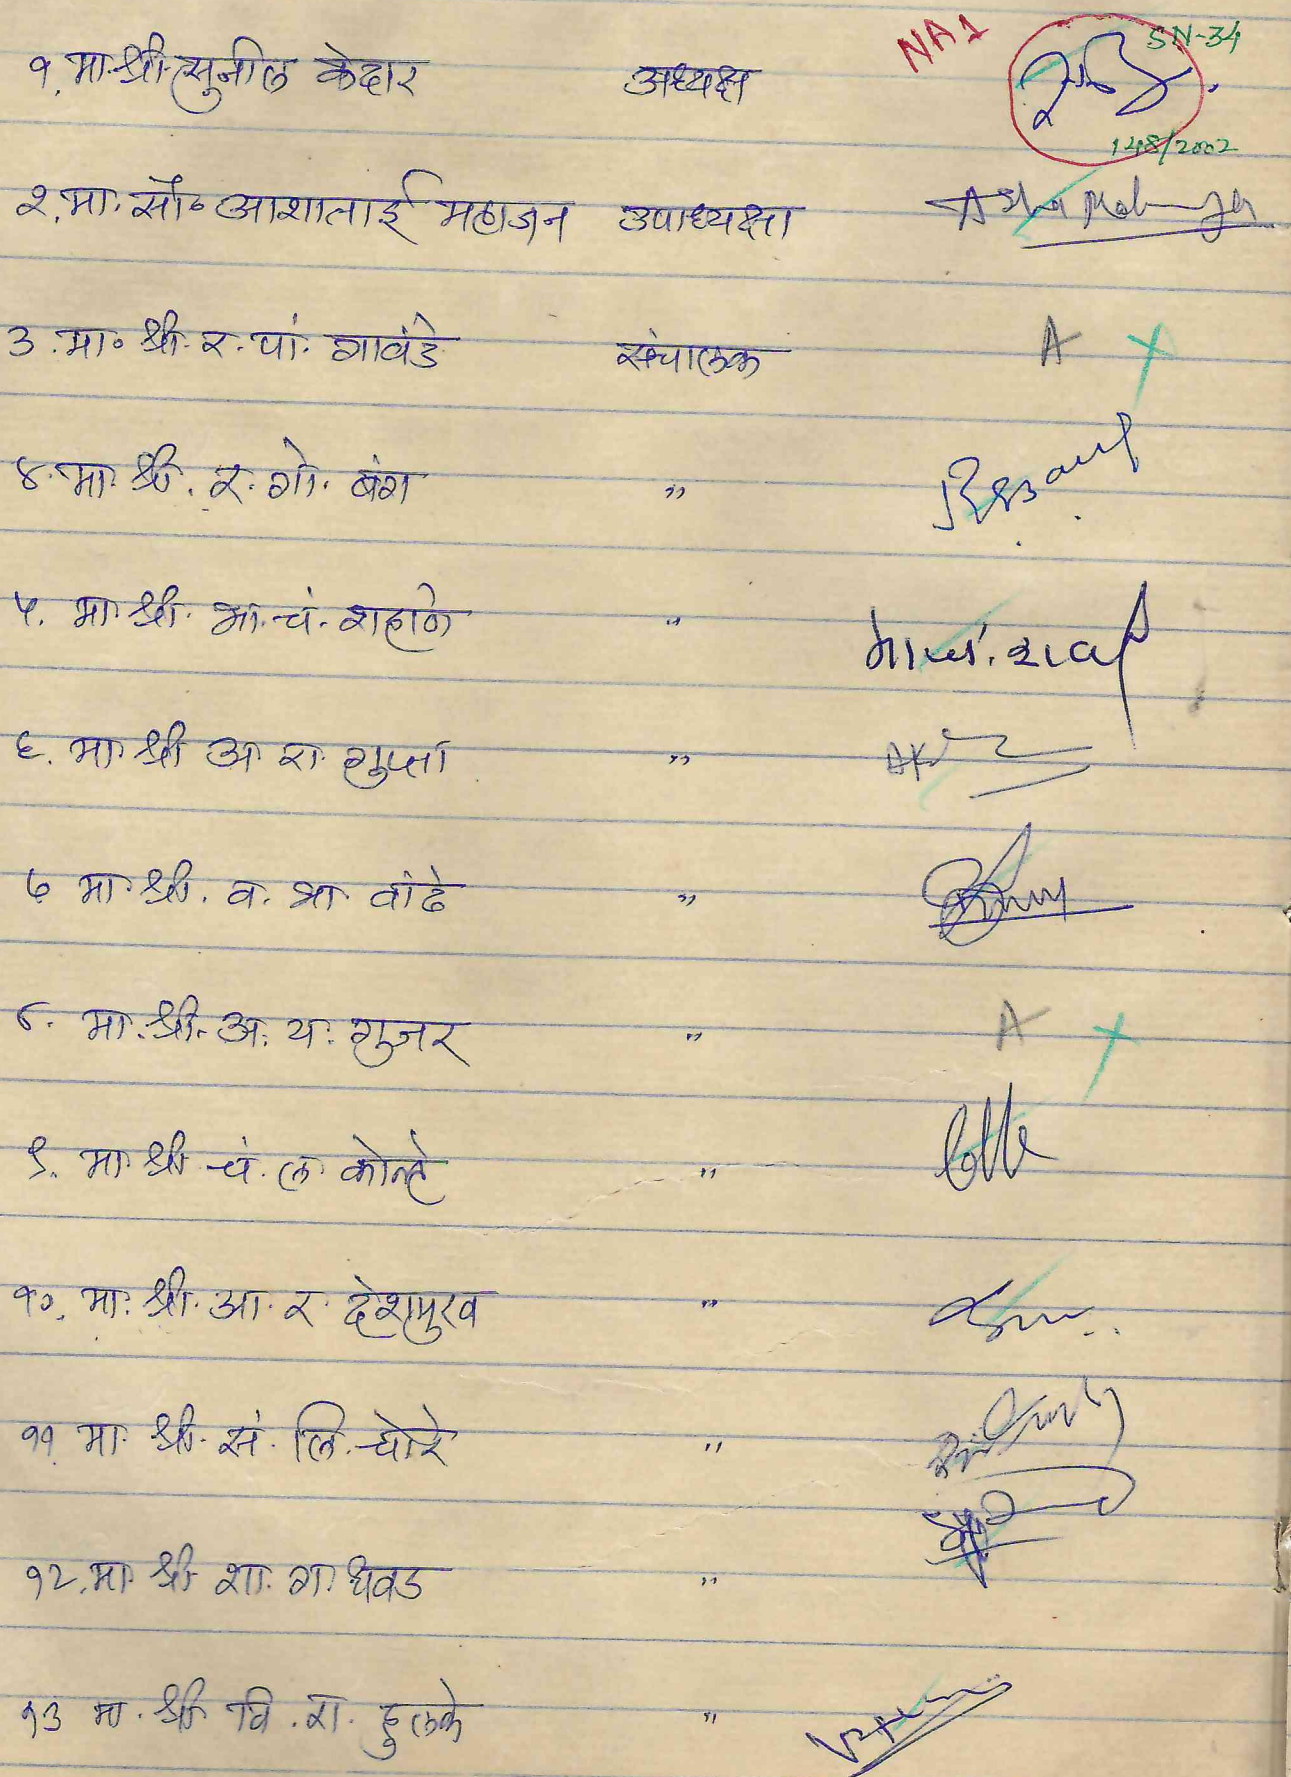 NA1 SN-34
१. मा. श्री. सुनील केदार अध्यक्ष
148/2002
२. मा. सौ० आशाताई महाजन उपाध्यक्षा Asha Mahajan
३. मा० श्री. र. पां. गावंडे संचालक A X
४. मा. श्री. र. गो. बंग "
५. मा. श्री. भा. चं. शहाणे "
६. मा. श्री अ. रा. गुप्ता "
७ मा. श्री. व. भा. वांढे "
८. मा. श्री. अ. य. गुजर " A X
९. मा. श्री चं. ल. कोल्हे "
१०. मा. श्री. आ. र. देशमुख "
११ मा. श्री. सं. लि. घोरे "
१२. मा. श्री शा. गा. धवड "
१३ मा. श्री वि. रा. हुलके "